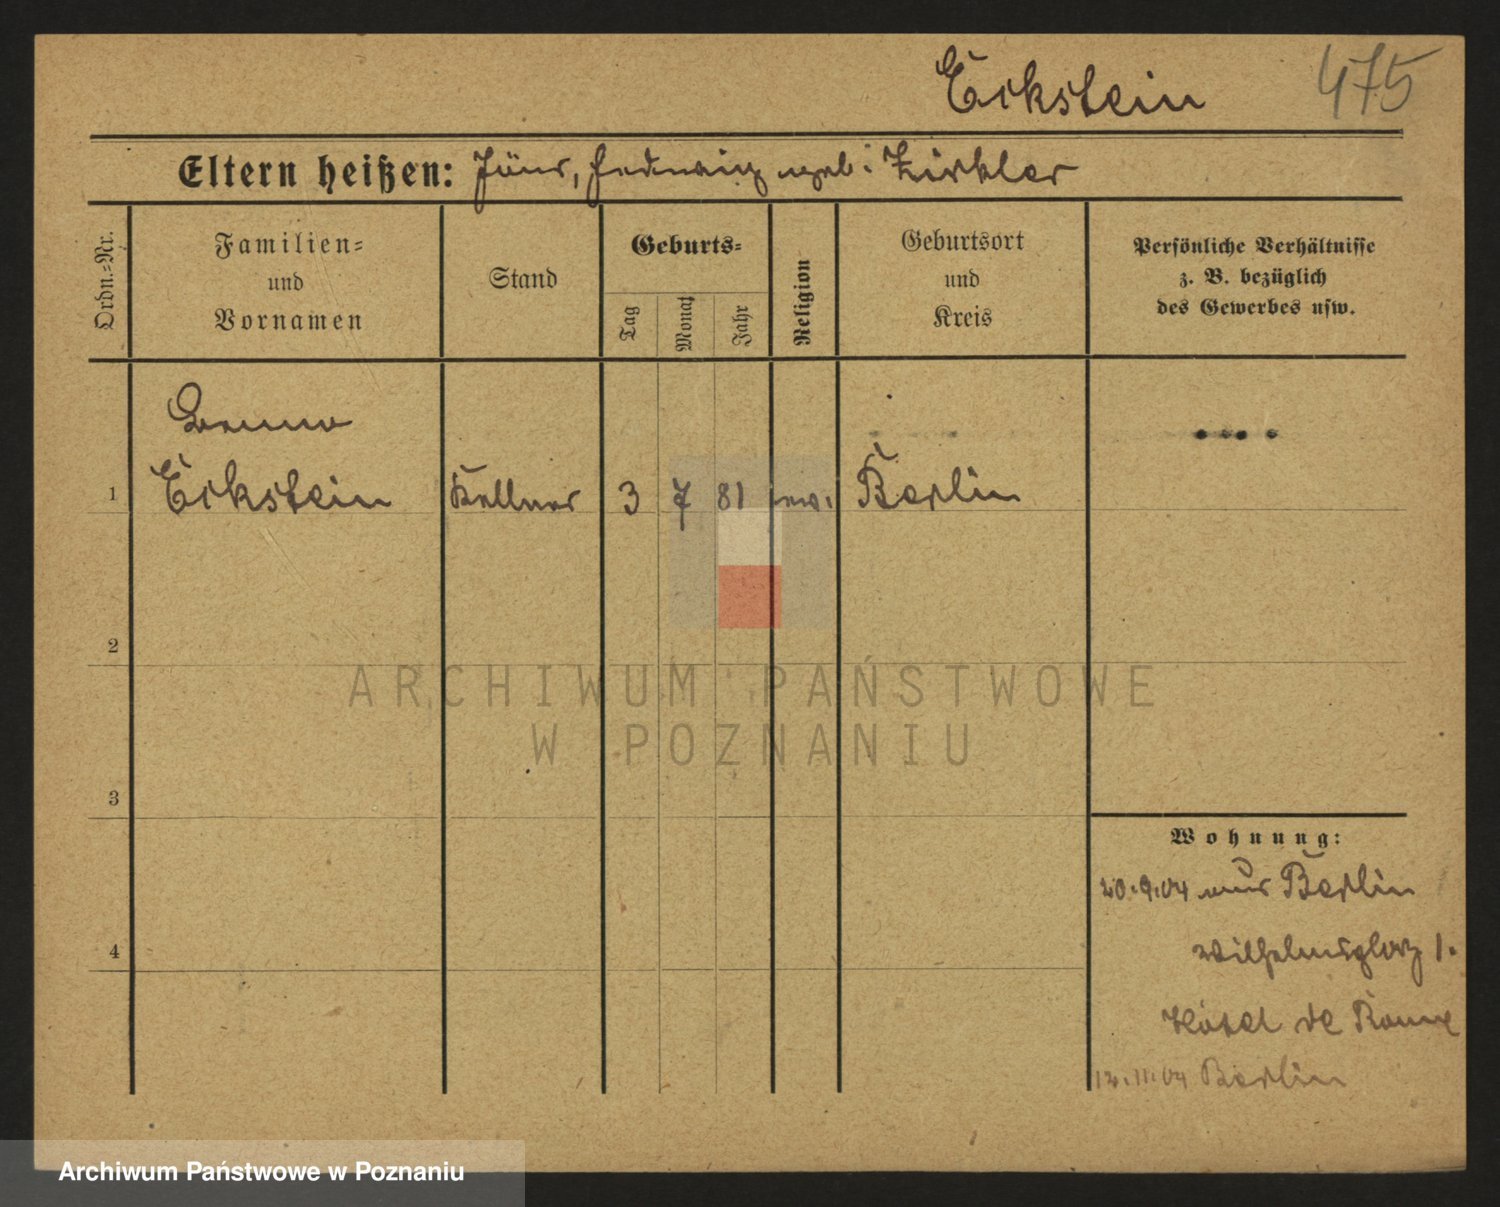 Eckstein 475
Eltern heißen: Hedwig geb: Zirkler
Ordn.-Nr.
Familien-
und
Vornamen
Stand
Geburts-
Tag
Monat
Jahr
Religion
Geburtsort
und
Kreis
Persönliche Verhältnisse
z. B. bezüglich
des Gewerbes usw.
Benno
1 Eckstein Kellner 3 7 81 ev. Berlin
2
3
4
Wohnung:
20.9.04 aus Berlin
Wilhelmsplatz 1.
Hotel de Rome
12.11.04 Berlin
ARCHIWUM PAŃSTWOWE
W POZNANIU
Archiwum Państwowe w Poznaniu